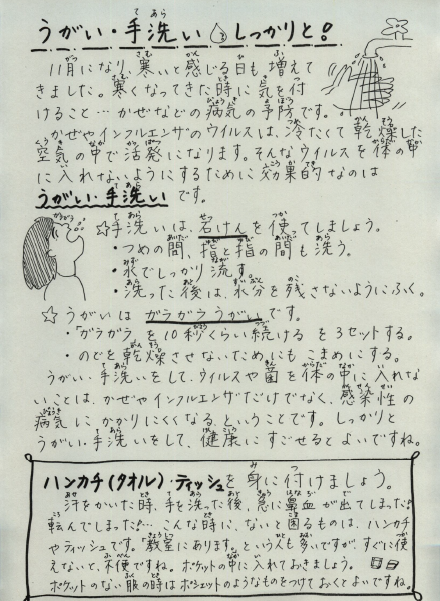 うがい・手洗い しっかりと!
11月になり、寒いと感じる日も増えて
きました。寒くなってきた時に気を付
けること…かぜなどの病気の予防です。
かぜやインフルエンザのウイルスは、冷たくて乾燥した
空気の中で活発になります。そんなウイルスを体の中
に入れないようにするために効果的なのは
うがい・手洗い です。
ガラガラ
☆手洗いは、石けんを使ってしましょう。
・つめの間、指と指の間も洗う。
・水でしっかり流す。
・洗った後は、水分を残さないようにふく。
☆うがいは ガラガラうがいです。
・"ガラガラ" を10秒くらい続ける を3セットする。
・のどを乾燥させないためにもこまめにする。
うがい・手洗いをして、ウイルスや菌を体の中に入れな
いことは、かぜやインフルエンザだけでなく、感染性の
病気に、かかりにくくなる、ということです。しっかりと
うがい・手洗いをして、健康にすごせるとよいですね。
ハンカチ(タオル)・ティッシュを身に付けましょう。
汗をかいた時、手を洗った後、急に鼻血が出てしまった!
転んでしまった!…こんな時に、ないと困るものは、ハンカチ
やティッシュです。"教室にあります。"という人も多いですが、すぐに使
えないと、不便ですね。ポケットの中に入れておきましょう。
ポケットのない服の時はポシェットのようなものをつけておくとよいですね。